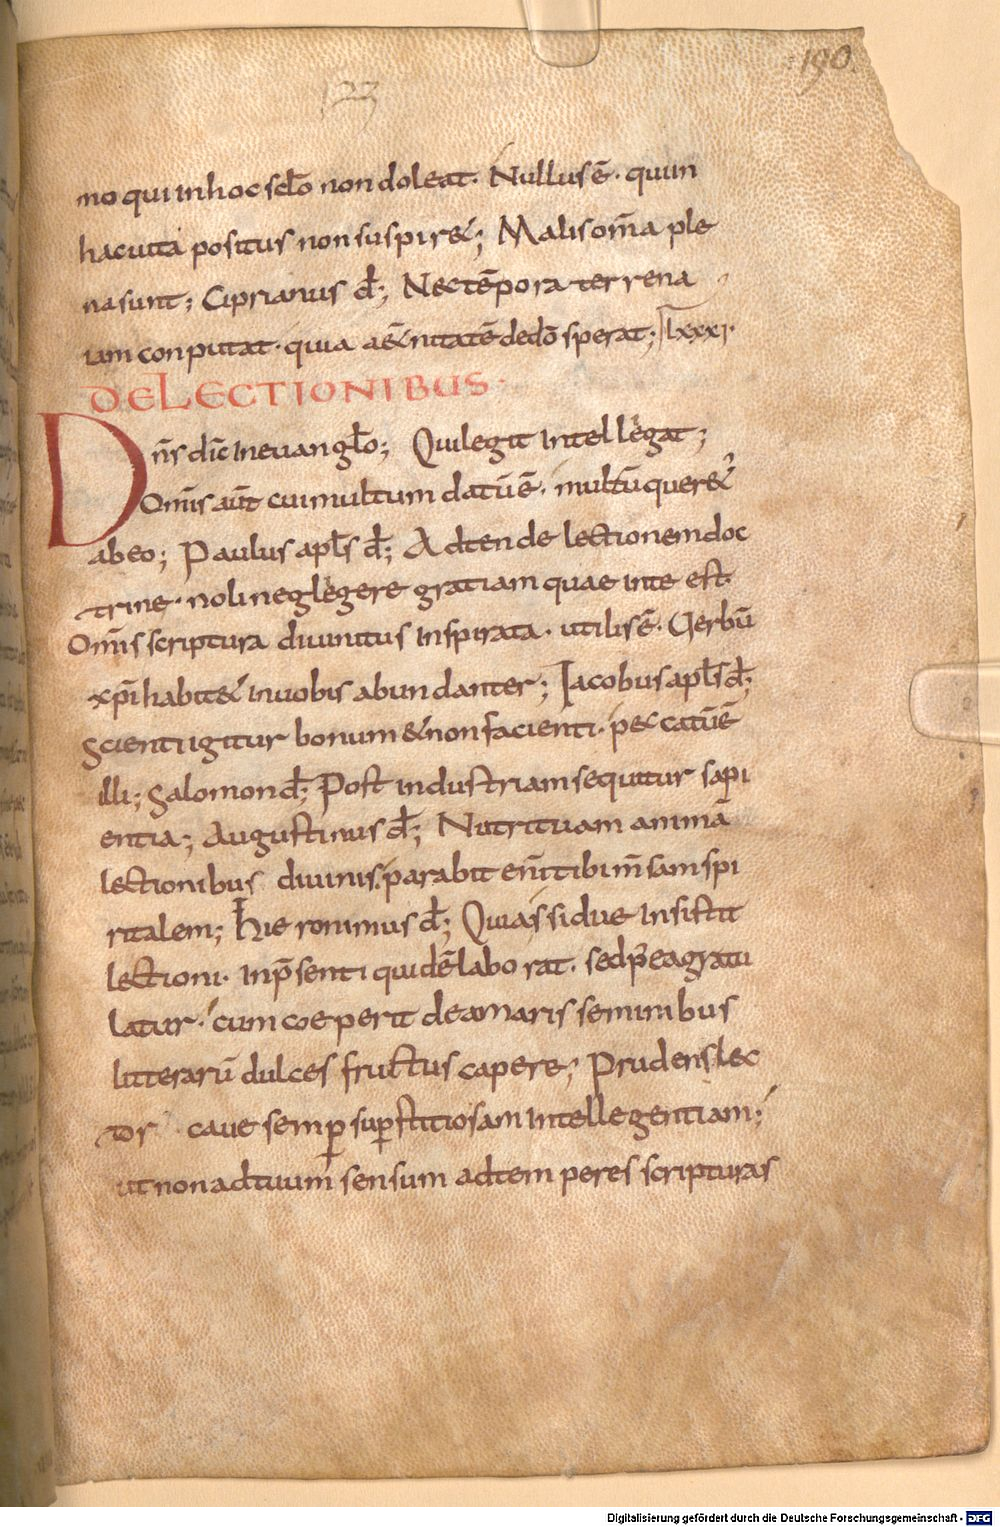 190.
123
mo qui inhoc sclo non doleat. Nullus ē. quiin
hacuita positus non suspir&; Malis om̄a ple
na sunt; Ciprianus d̄; Nec tēpora terrena
iam conputat. quia a&nitatē de dō sperat; Lxxxi.
DE LECTIONIBUS.
Dn̄s dic̄ Ineuanglo; Qui legit Intellegat;
Omīs aūt cui multum datū ē. multū quer&
abeo; Paulus apls d̄; Adtende lectionem doc
trine. noli neglegere gratiam quae Inte est.
Omīs scriptura diuinitus Inspirata. utilis ē. Uerbū
xp̄i habit& Inuobis abundanter; Iacobus apls d̄;
Scienti igitur bonum & non facienti. peccatū ē
illi; Salomon d̄; Post industriam sequitur sapi
entia; Augustinus d̄; Nutri tuam animā
lectionibus diuinis. parabit en̄ tibi m̄sam spi
ritalem; Hieronimus d̄; Qui assidue Insistit
lectioni. Inp̄senti quidē laborat. sed p̄ea gratu
latur. cum coeperit de amaris seminibus
litterarū dulces fructus capere; Prudens lec
tor caue semp̱ sup̱stitiosam Intellegentiam;
ut non ad tuum sensum adtemperes scripturas
Digitalisierung gefördert durch die Deutsche Forschungsgemeinschaft - DFG